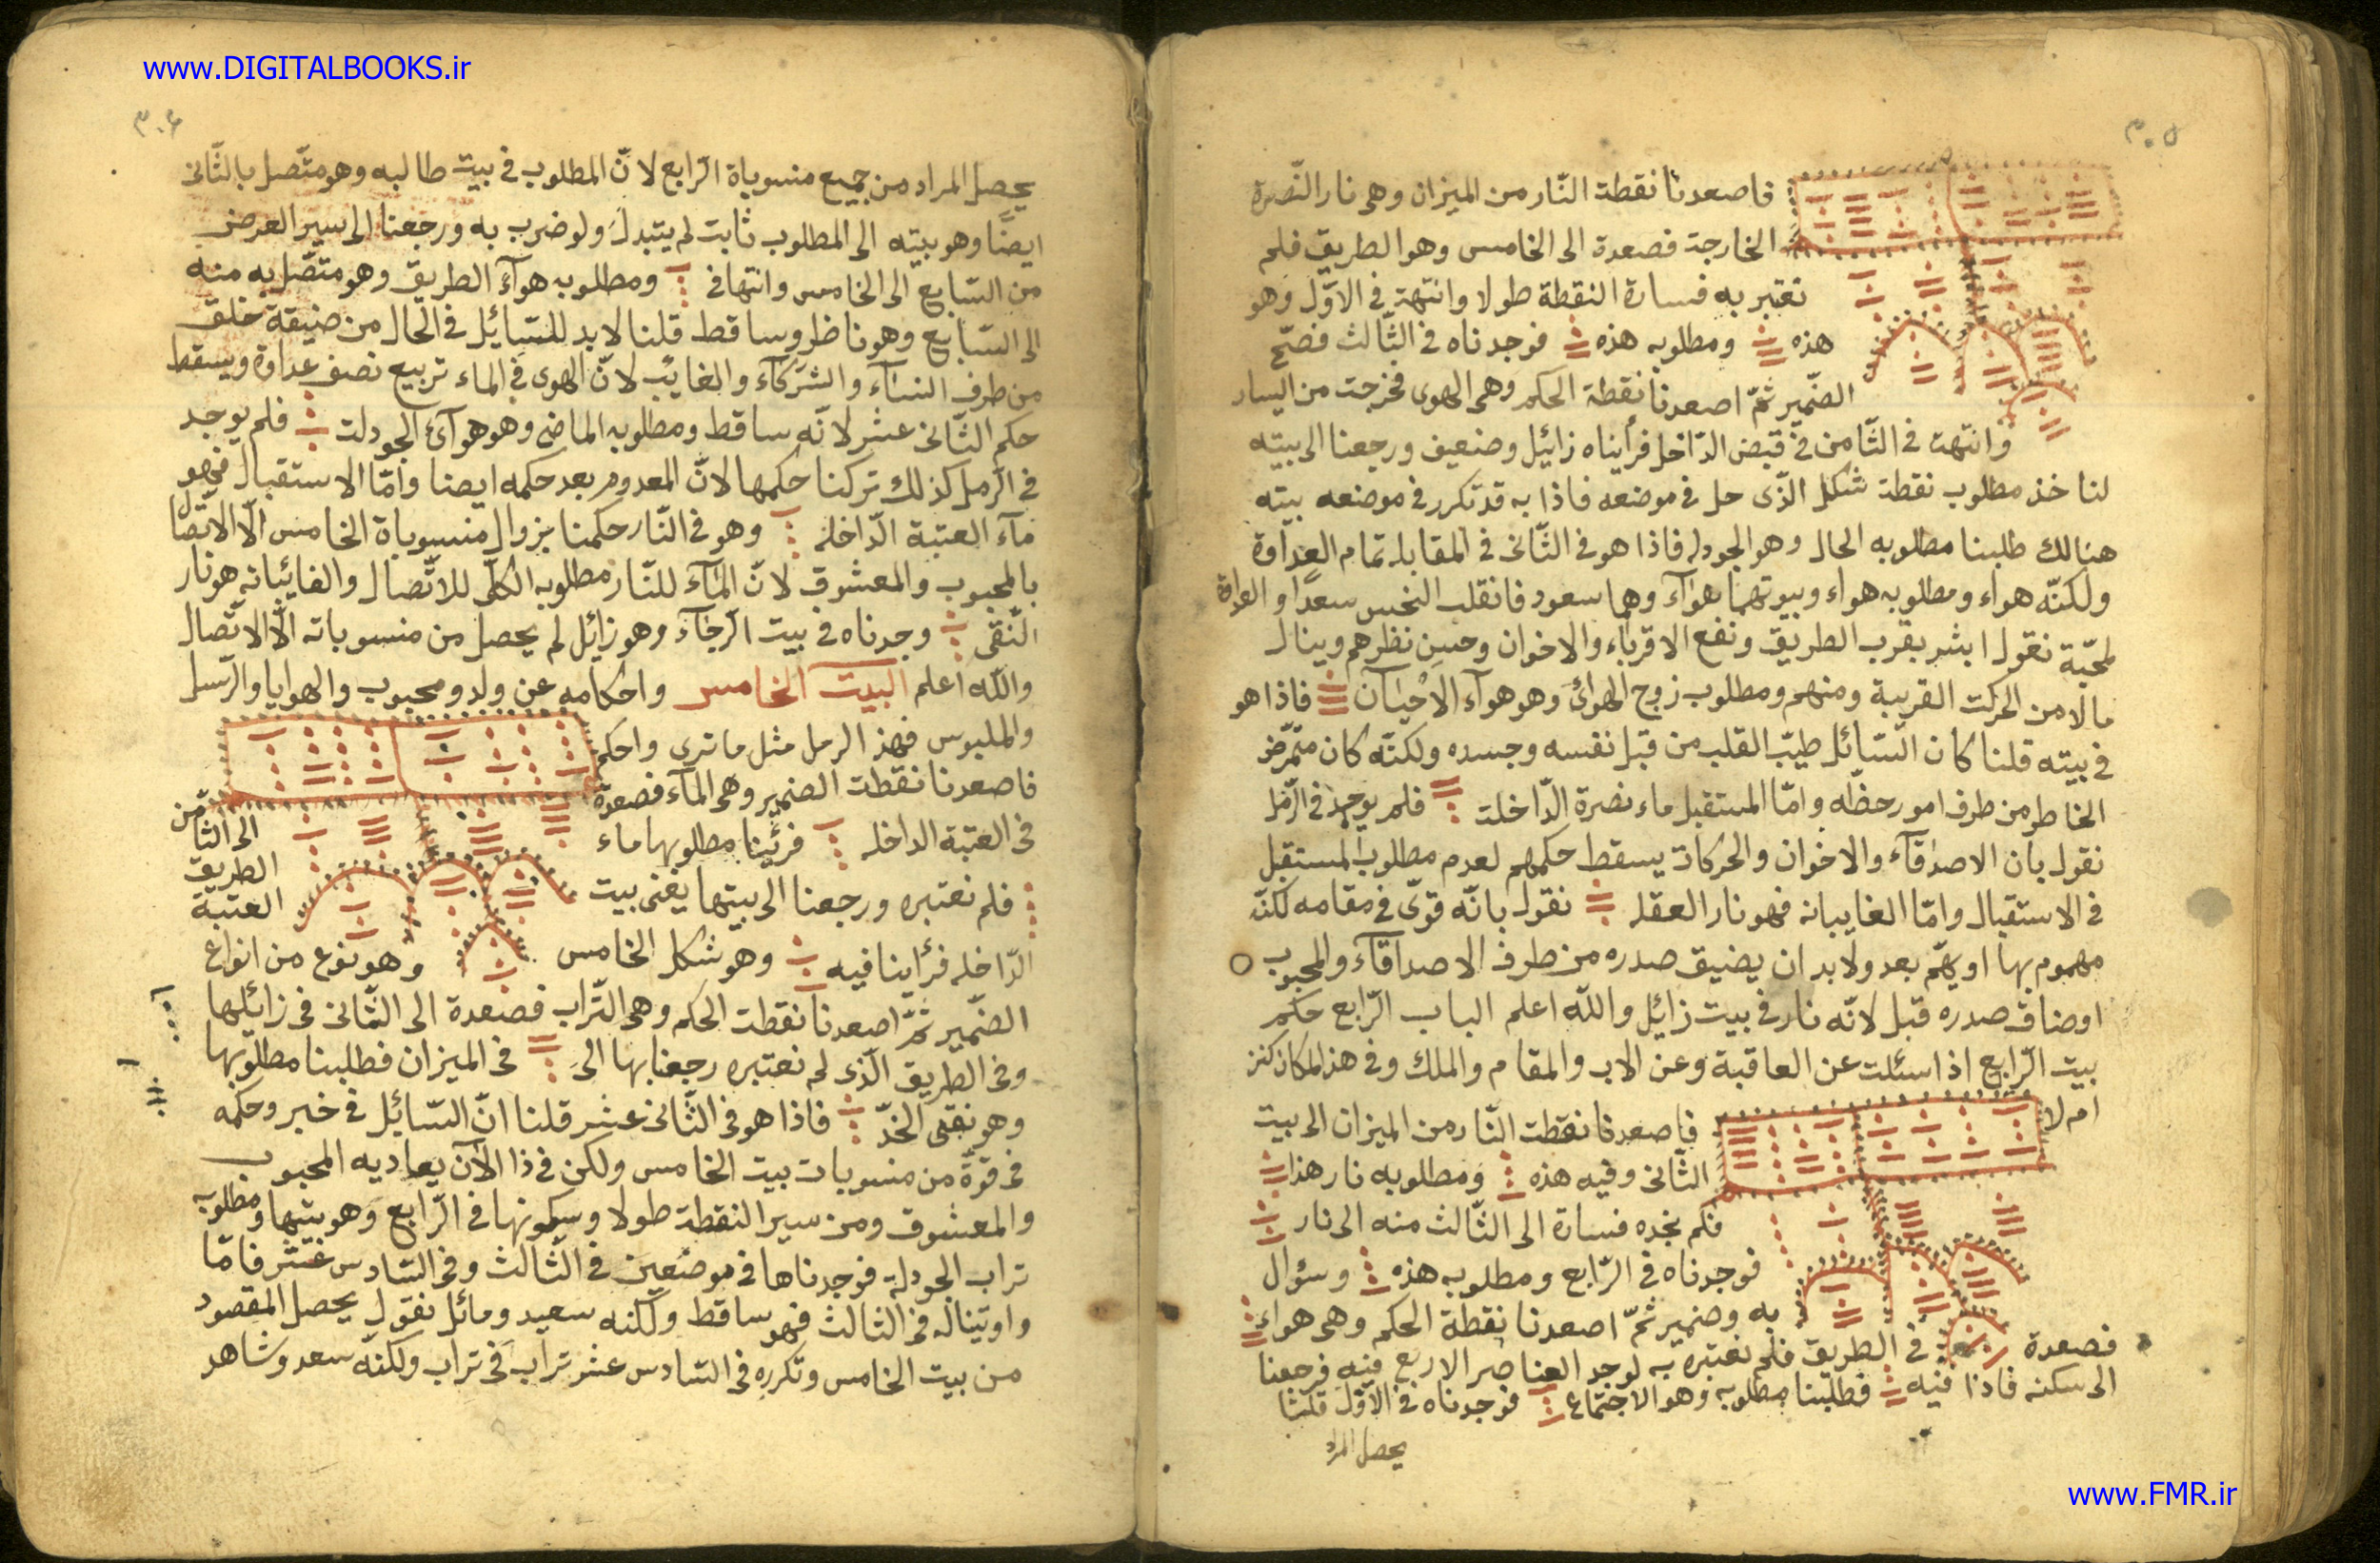 www.DIGITALBOOKS.ir
٣٠٥
فاصعدنا نقطة النّار من الميزان وهى نار النّصرة
الخارجة فصعدة الى الخامس وهو الطريق فلم
نعتبر به فسارة النقطة طولا وانتهت فى الاوّل وهو
هذه ومطلوبه هذه فوجدناه فى الثّالث فصحّ
الضّمير ثمّ اصعدنا نقطة الحكم وهى الهوى فخرجت من اليسار
وانتهت فى الثّامن فى قبض الدّاخل فرأيناه زائل وضعيف ورجعنا الى بيته
لنا خذ مطلوب نقطة شكل الّذى حل فى موضعه فاذا به قد تكرر فى موضعه بيته
هنالك طلبنا مطلوبه الحال وهو الجودله فاذا هو فى الثّانى فى المقابله تمام العداوة
ولكنّه هواء ومطلوبه هواء وبيوتهما هوآء وهما سعود فانقلب النحس سعدًا و العداوة
لمحبّة نقول ابشر بقرب الطريق ونفع الاقرباء والاخوان وحسن نظرهم وينال
مالا من الحركت القريبة ومنهم ومطلوب زوج الهوائ وهو هوآء الاحيان فاذا هو
فى بيته قلنا كان السّائل طيب القلب من قبل نفسه وجسده ولكنّه كان متمرّض
الخاطر من طرف امور حظّه وامّا المستقبل ماء نصرة الدّاخلت فلم يوجد فى الرّمل
نقول بان الاصدقآء والاخوان والحركات يسقط حكمهم لعدم مطلوب المستقبل
فى الاستقبال وامّا الغايبانه فهو نار العقله نقول بانّه قوىّ فى مقامه لكنّه
مهموم بها او يهمّ بعد ولا بد ان يضيق صدره من طرف الاصداقآء والمحبوب
اوضاق صدره قبل لانّه نار فى بيت زائل والله اعلم الباب الرّابع حكم
بيت الرّابع اذا سئلت عن العاقبة وعن الاب والمقام والملك وفى هذ المكان كنز
ام لا فاصعدنا نقطت النّار من الميزان الى بيت
الثّانى وفيه هذه ومطلوبه نار هذا
فلم نجده فسارة الى الثّالث منه الى نار
فوجدناه فى الرّابع ومطلوبه هذه وسؤال
به وضمير ثمّ اصعدنا نقطة الحكم وهى هواء
فصعدة فى الطريق فلم نعتبره به لوجد العناصر الاربع فيه فرجعنا
الى سكنه فاذا فيه فطلبنا مطلوبه وهو الاجتماع فوجدناه فى الاوّل قلنا
يحصل المراد
٣٠٦
يحصل المراد من جميع منسوباة الرّابع لانّ المطلوب فى بيت طالبه وهو متّصل بالثّانى
ايضًا وهو بيته الى المطلوب ثابت لم يتبدل ولو ضرب به ورجعنا الى سير العرض
من السّابع الى الخامس وانتها فى ومطلوبه هوآء الطريق وهو متصّل به منه
الى السّابع وهو ناظر وساقط قلنا لا بد للسّائل فى الحال من ضيقة خلق
من طرف النسآء والشركآء والغايب لانّ الهوى فى الماء تربيع نصف عداوة ويسقط
حكم الثّانى عشر لانّه ساقط ومطلوبه الماضى وهو هوآئ الجودلت فلم يوجد
فى الرمل كذلك تركنا حكمها لانّ المعدوم بعد حكمه ايضا وامّا الاستقبال فهو
مآء العتبة الدّاخله وهو فى النّار حكمنا بزوال منسوباة الخامس الّا الاتّصال
بالمحبوب والمعشوق لانّ المآء للنّار مطلوبه الكلّى للاتّصال والغائبانه هو نار
النّقى وجدناه فى بيت الرّجآء وهو زائل لم يحصل من منسوباته الّا الاتّصال
والله اعلم البيت الخامس واحكامه عن ولد ومحبوب والهوايا والرّسل
والملبوس فهذ الرمل مثل ما ترى واحكم
فاصعدنا نقطت الضمير وهى المآء فصعدة الى الثامن
فى العتبة الداخله فرئينا مطلوبها ماء الطريق
فلم نعتبره ورجعنا الى بيتها يعنى بيت العتبة
الدّاخله فرأينا فيه وهو شكل الخامس وهو نوع من انواع
الضّمير ثمّ اصعدنا نقطت الحكم وهى التّراب فصعدة الى الثّمانى فى زائلها
وفى الطريق الّذى لم نعتبره رجعنا بها الى فى الميزان فطلبنا مطلوبها
وهو نقى الخدّ فاذا هو فى الثّانى عشر قلنا انّ السّائل فى خير وحكمه
فى قوّة من منسوبات بيت الخامس ولكن فى ذا الآن يعاديه المحبوب
والمعشوق ومن سير النقطة طولا وسكونها فى الرّابع وهو بيتها ومطلوبه
تراب الجودلة فوجدناها فى موضعين فى الثّالث وفى السّادس عشر فامّا
واوتيناله فى الثالث فهو ساقط ولكنه سعيد ومائل نقول يحصل المقصود
من بيت الخامس وتكرره فى السّادس عشر تراب فى تراب ولكنّه سعد وشاهد
www.FMR.ir